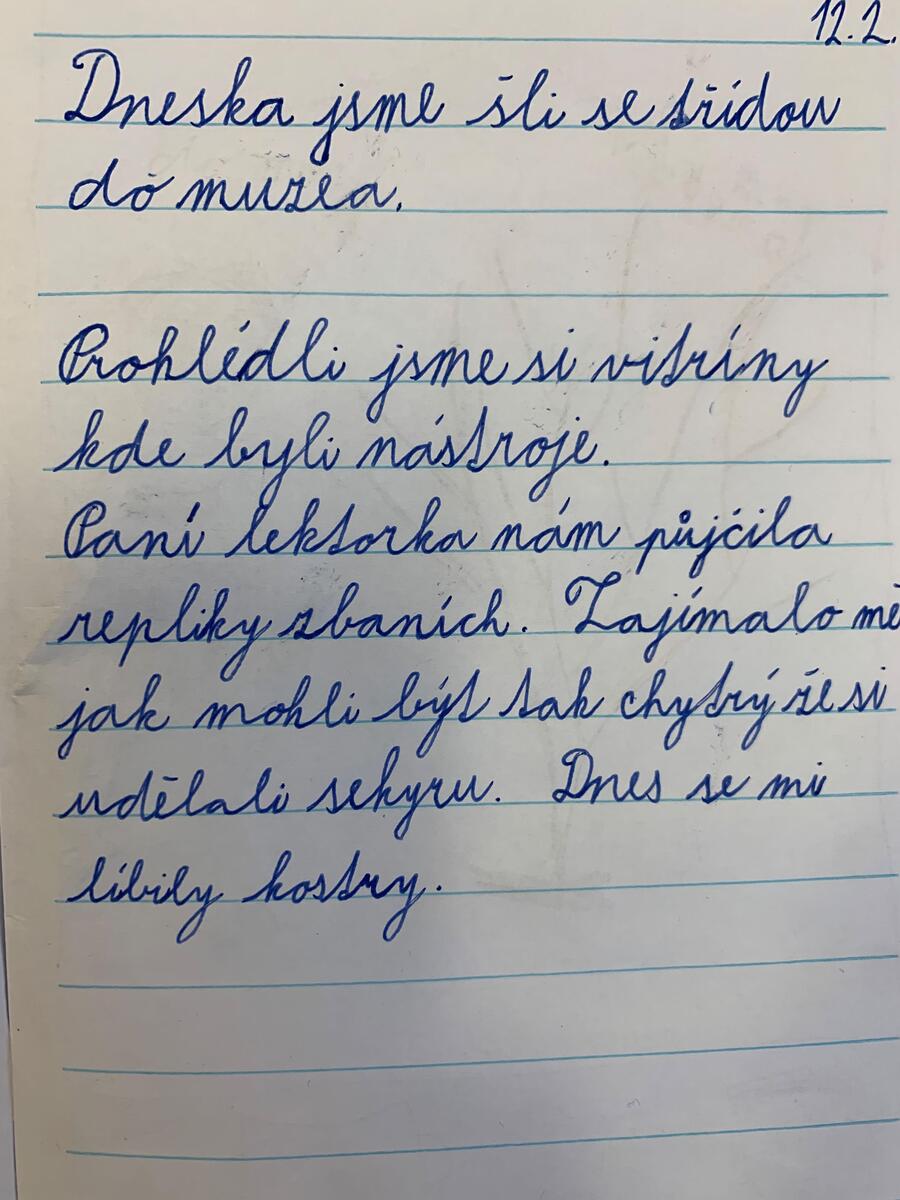 12.2.
Dneska jsme šli se třídou
do muzea.
Prohlédli jsme si vitríny
kde byli nástroje.
Paní lektorka nám půjčila
repliky zbaních. Zajímalo mě
jak mohli být tak chytrý že si
udělali sekyru. Dnes se mi
líbily kostry.